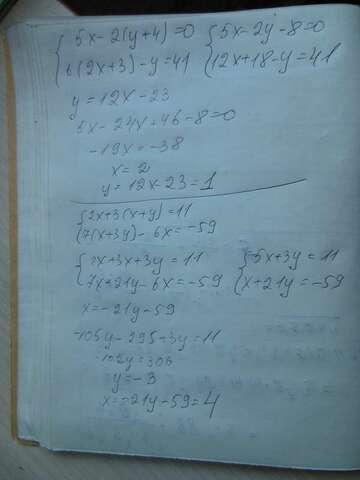 {5x-2(y+4)=0 {5x-2y-8=0
{6(2x+3)-y=41 {12x+18-y=41
y=12x-23
5x-24x+46-8=0
-19x=-38
x=2
y=12x-23=1
{2x+3(x+y)=11
{7(x+3y)-6x=-59
{2x+3x+3y=11 {5x+3y=11
{7x+21y-6x=-59 {x+21y=-59
x=-21y-59
-105y-295+3y=11
-102y=306
y=-3
x=-21y-59=4